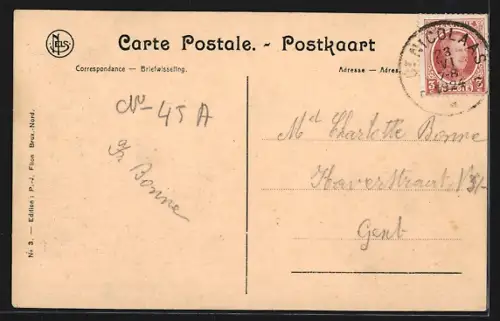 Carte Postale. - Postkaart
Correspondance — Briefwisseling.
Adresse — Adres
ST NICOLAAS
23
VI
7-8
1924
No 45 A
Fr Bonne
Md Charlotte Bonne
Haverstraat
Gent
No 3. — Edition: P.-J. Flion Brux.-Nord.
NELS